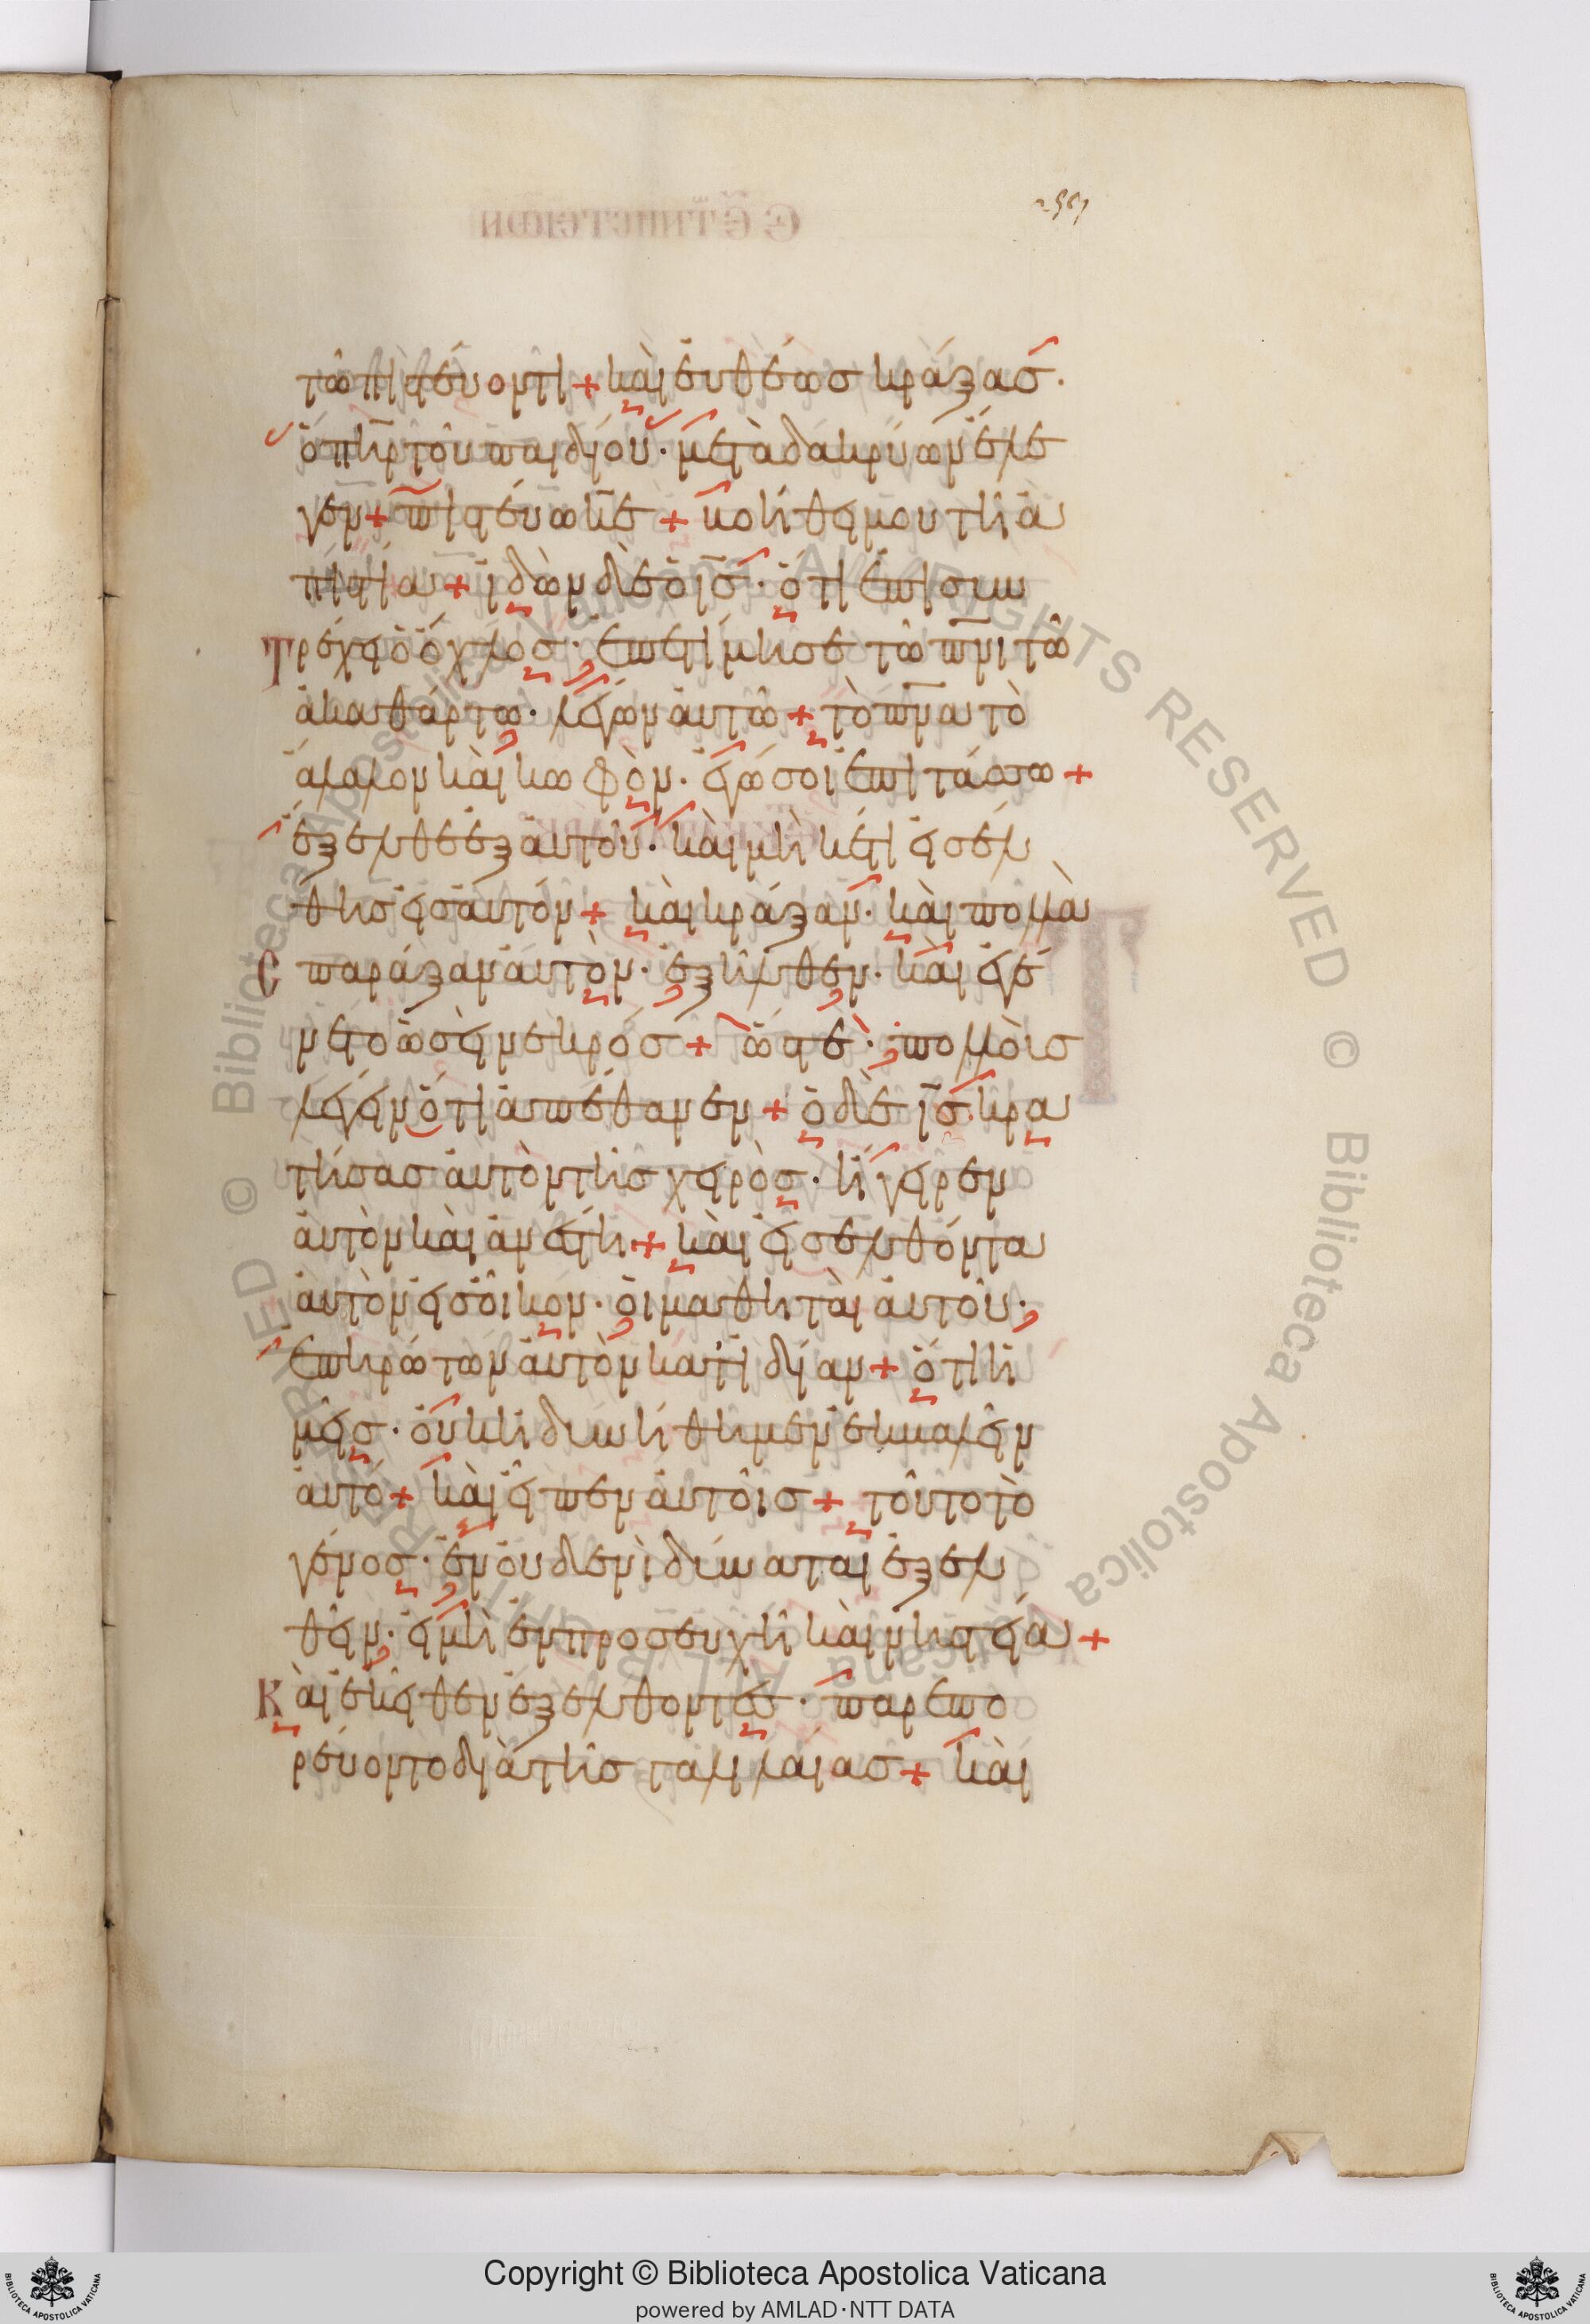 τῶ πιστεύοντι + καὶ εὐθέωσ κράξασ·
ὁ πηρ τοῦ παιδίου· μετὰ δακρύων ἔλε
γεν + πιστεύω κε + βοήθει μου τῆ ἀ
πιστία + ἰδὼν δὲ ὁ ισ· ὅτι ἐπισυν
Τρέχει ὁ ὄχλοσ· ἐπετίμησε τῶ πνι τῶ
ἀκαθάρτω· λέγων αὐτῶ + τὸ πνα τὸ
ἄλαλον καὶ κωφὸν· ἐγώ σοι ἐπιτάσσω +
ἔξελθε ἐξ αὐτοῦ· καὶ μὴ κέτι εἰσέλ
θησ εἰσ αὐτόν + καὶ κράξαν· καὶ πολλὰ
Σπαράξαν αὐτὸν· ἐξῆλθεν· καὶ ἐγέ
νετο ὡσεὶ νεκρόσ + ὥστε· πολλοὺσ
λέγειν ὅτι ἀπέθανεν + ὁ δὲ ισ κρα
τήσασ αὐτὸν τῆσ χειρὸσ· ἤγειρεν
αὐτὸν καὶ ἀνέστη + καὶ εἰσελθόντα
αὐτὸν εἰσ οἶκον· οἱ μαθηταὶ αὐτοῦ·
ἐπηρώτων αὐτὸν κατ ἰδίαν + ὅτι ἡ
μεῖσ· οὐκ ἠδυνήθημεν ἐκβαλεῖν
αὐτό + καὶ εἶπεν αὐτοῖσ + τοῦτο τὸ
γένοσ· ἐν οὐδενὶ δύναται ἐξελ
θεῖν· εἰ μὴ ἐν προσευχῆ καὶ νηστεία +
Καὶ ἐκεῖθεν ἐξελθοντεσ· παρεπο
ρεύοντο διὰ τῆσ γαλιλαίασ + καὶ
Copyright © Biblioteca Apostolica Vaticana
powered by AMLAD·NTT DATA